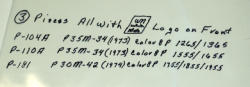 ③ Pieces All with Logo on Front
P-104A P35M-34 (1973) color BP 1265/1365
P-110A P35M-34 (1973) color BP 1555/1655
P-191 P30M-42 (1974) color BP 1755/1855/1955